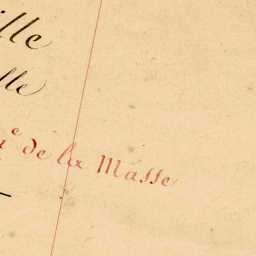 ille
lle
de la Masse